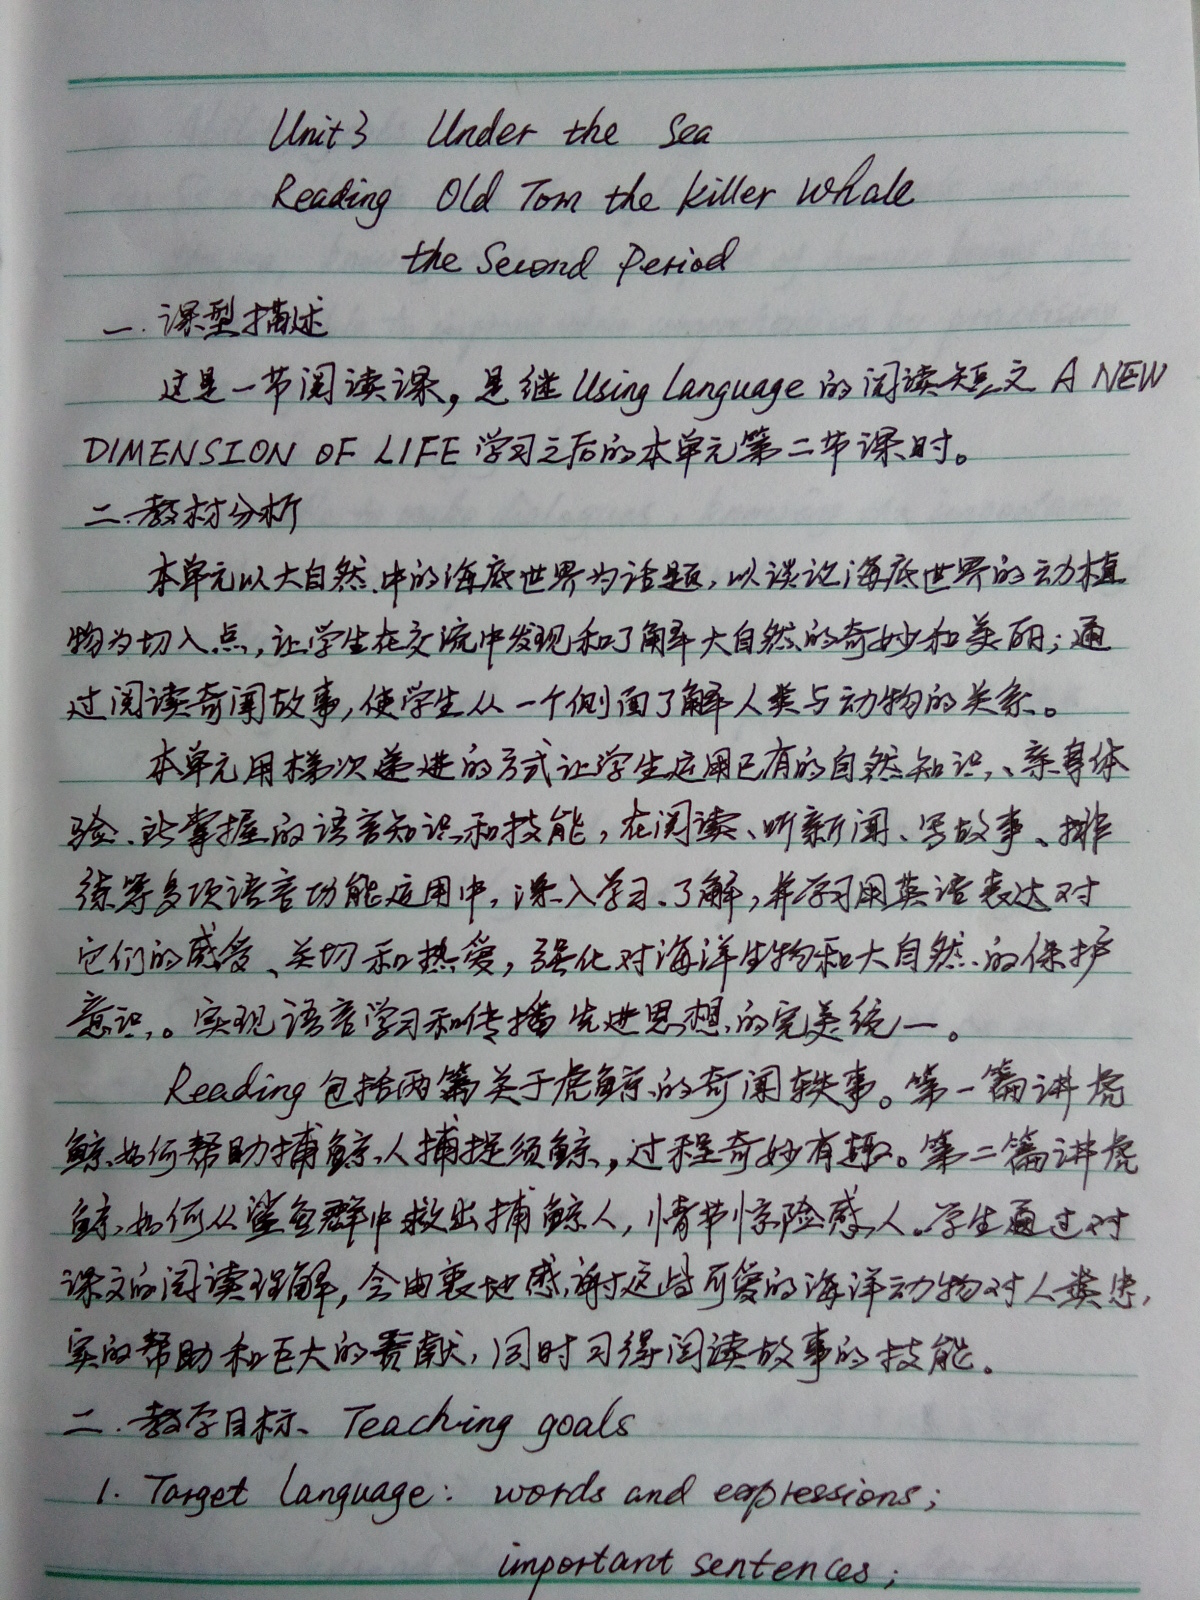 Unit 3 Under the Sea
Reading Old Tom the Killer Whale
the Second Period
一.课型描述
这是一节阅读课,是继Using Language的阅读短文 A NEW
DIMENSION OF LIFE学习之后的本单元第二节课时。
二.教材分析
本单元以大自然中的海底世界为话题,以谈论海底世界的动植
物为切入点,让学生在交流中发现和了解大自然的奇妙和美丽;通
过阅读奇闻故事,使学生从一个侧面了解人类与动物的关系。
本单元用梯次递进的方式让学生运用已有的自然知识、亲身体
验、所掌握的语言知识和技能,在阅读、听新闻、写故事、排
练等多项语言功能应用中,深入学习、了解,并学习用英语表达对
它们的感受、关切和热爱,强化对海洋生物和大自然的保护
意识。实现语言学习和传播先进思想的完美统一。
Reading包括两篇关于虎鲸的奇闻轶事。第一篇讲虎
鲸如何帮助捕鲸人捕捉须鲸,过程奇妙有趣。第二篇讲虎
鲸如何从鲨鱼群中救出捕鲸人,情节惊险感人。学生通过对
课文的阅读理解,会由衷地感谢这些可爱的海洋动物对人类忠
实的帮助和巨大的贡献,同时习得阅读故事的技能。
二.教学目标、Teaching goals
1. Target language: words and expressions;
important sentences;